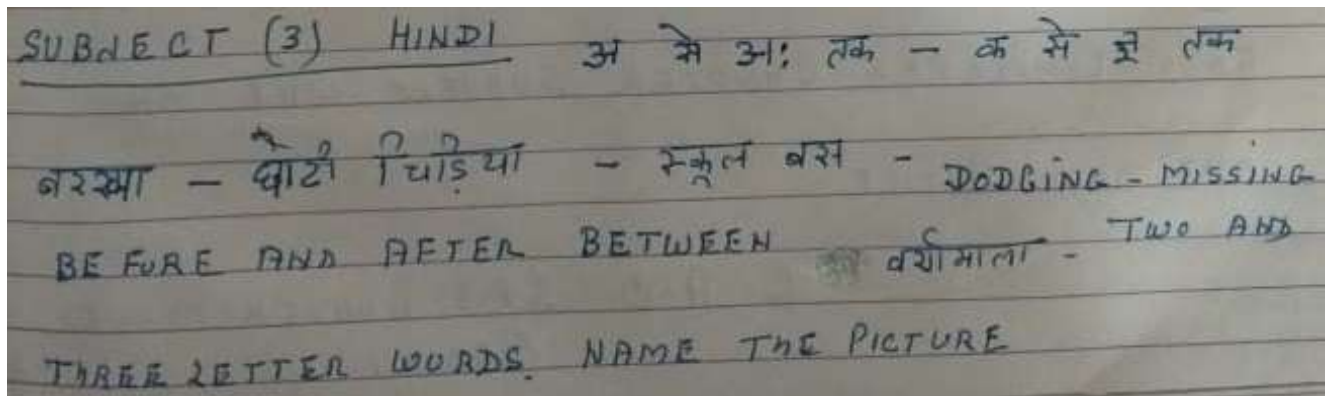 SUBJECT (3) HINDI अ से अ: तक - क से ज्ञ तक
बरखा - छोटी चिड़िया - स्कूल बस - DODGING - MISSING
BEFORE AND AFTER BETWEEN वर्णमाला - TWO AND
THREE LETTER WORDS. NAME THE PICTURE